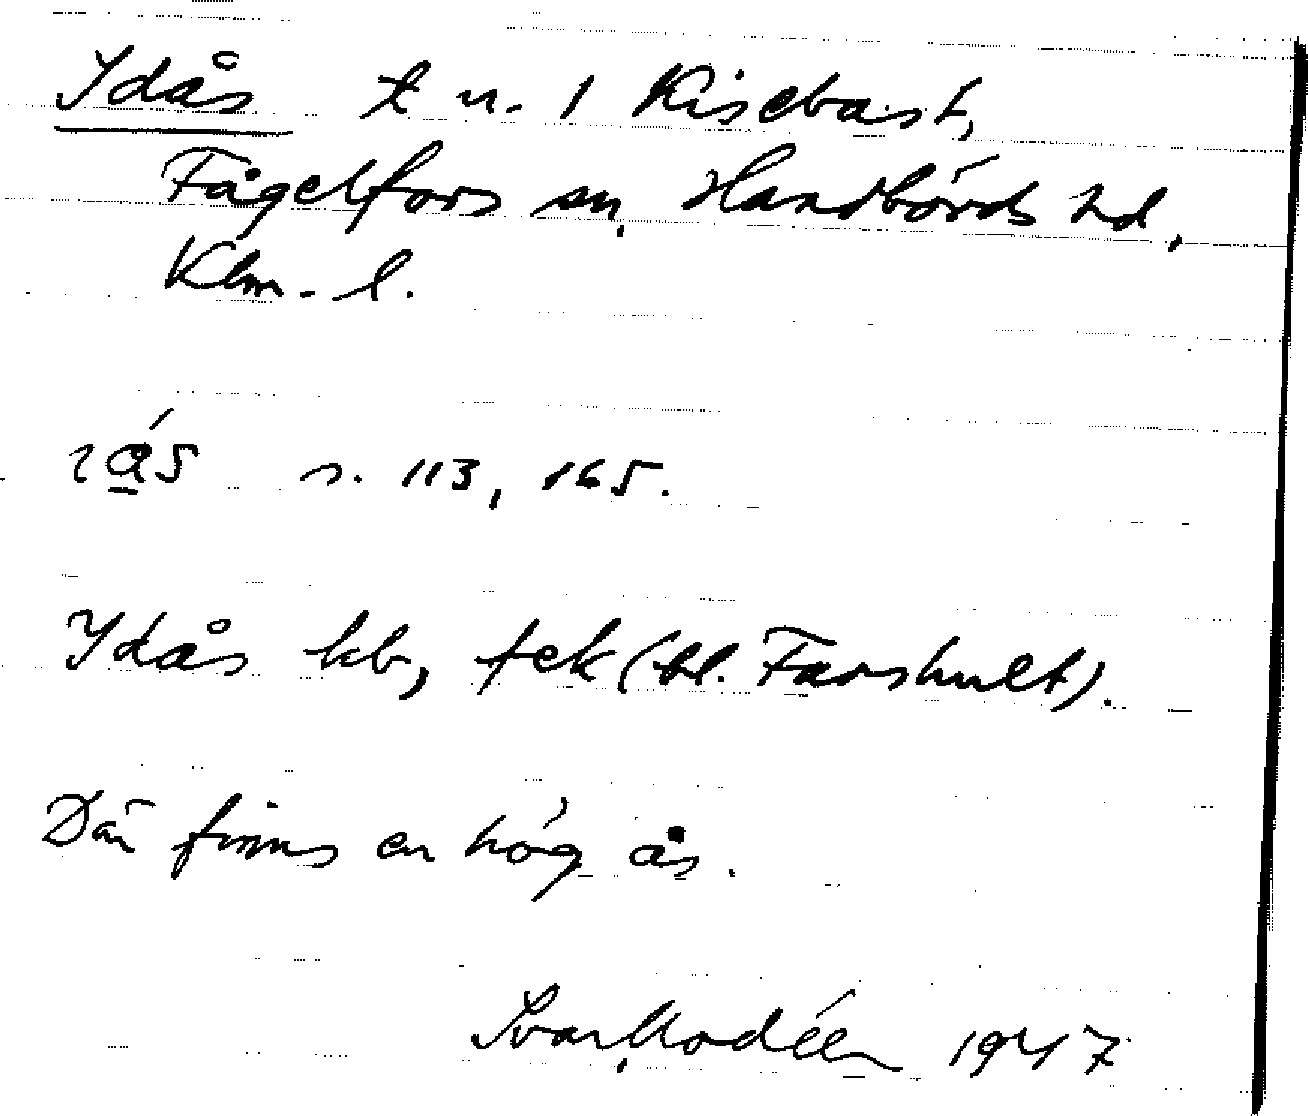 Idås t u. 1 Risebast,
Fågelfors sn, Handbörds hd,
Klm. l.
s. 113, 165.
Idås kb, tek (bl. Farshult).
Där finns en hög ås.
Ivar Modéer 1947